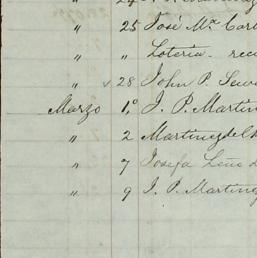 " 25 José Mª Car
" " Lotería - rec
" 28 John P. Sew
Marzo 1º J. P. Martin
" 2 Martinez del
" 7 Josefa
" 9 J. P. Martin